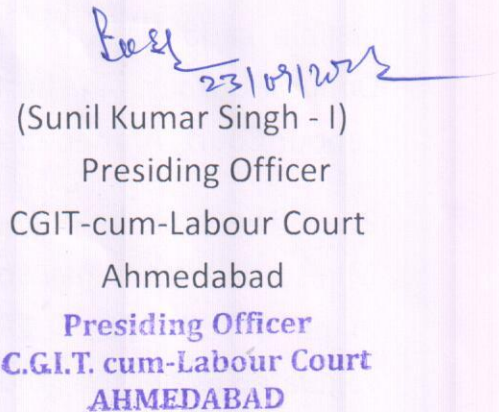 23/09/2022
(Sunil Kumar Singh - I)
Presiding Officer
CGIT-cum-Labour Court
Ahmedabad
Presiding Officer
C.G.I.T. cum-Labour Court
AHMEDABAD